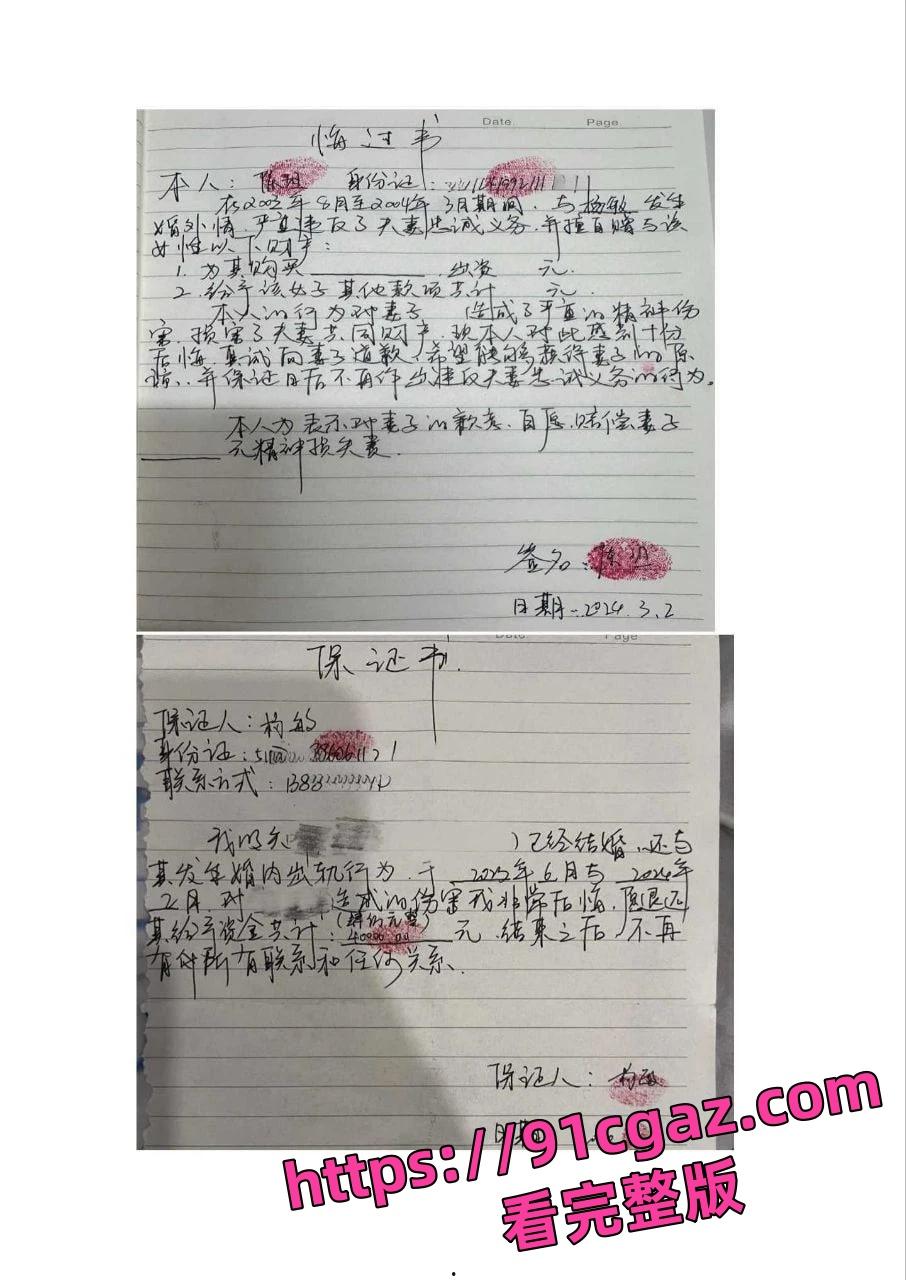 Date Page
悔过书
本人: 陈 身份证:
在2023年8月至2024年3月期间,与杨敏发生
婚外情,严重违反了夫妻忠诚义务,并擅自赠与该
女性以下财产:
1. 为其购买 出资 元.
2. 给予该女子其他款项共计 元.
本人的行为对妻子 造成了严重的精神伤
害,损害了夫妻共同财产,现本人对此感到十分
后悔,真诚向妻子道歉,希望能够获得妻子的原
谅,并保证日后不再作出违反夫妻忠诚义务的行为。
本人为表示对妻子的歉意,自愿赔偿妻子
元精神损失费.
签名: 陈
日期:2024.3.2
Date Page
保证书.
保证人:杨敏
身份证:
联系方式:
我明知 已经结婚,还与
其发生婚内出轨行为,于 年6月与2024年
2月对 造成的伤害我非常后悔,愿退还
其给予资金共计: 40000.00 元,结束之后,不再
有任何联系和任何关系.
保证人:杨
日期
https://91cgaz.com
看完整版